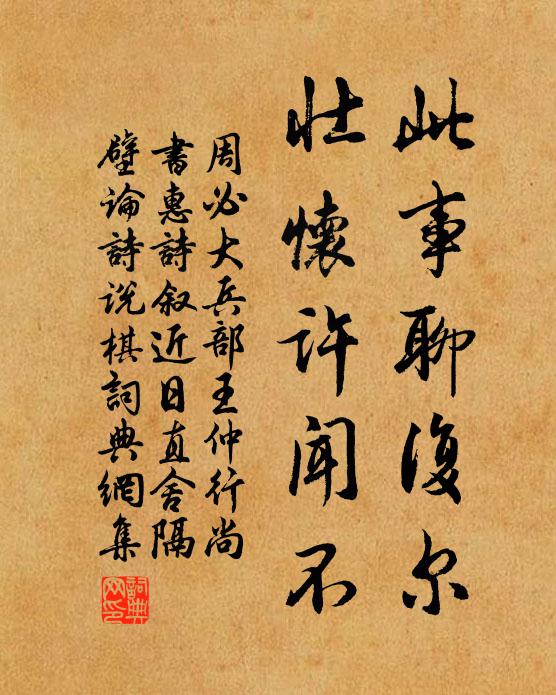 此事聊復尔
壮懷許闻不
周必大兵部王仲行尚
書惠詩叙近日直舍隔
壁論詩说棋詞典網集
詞典
网印